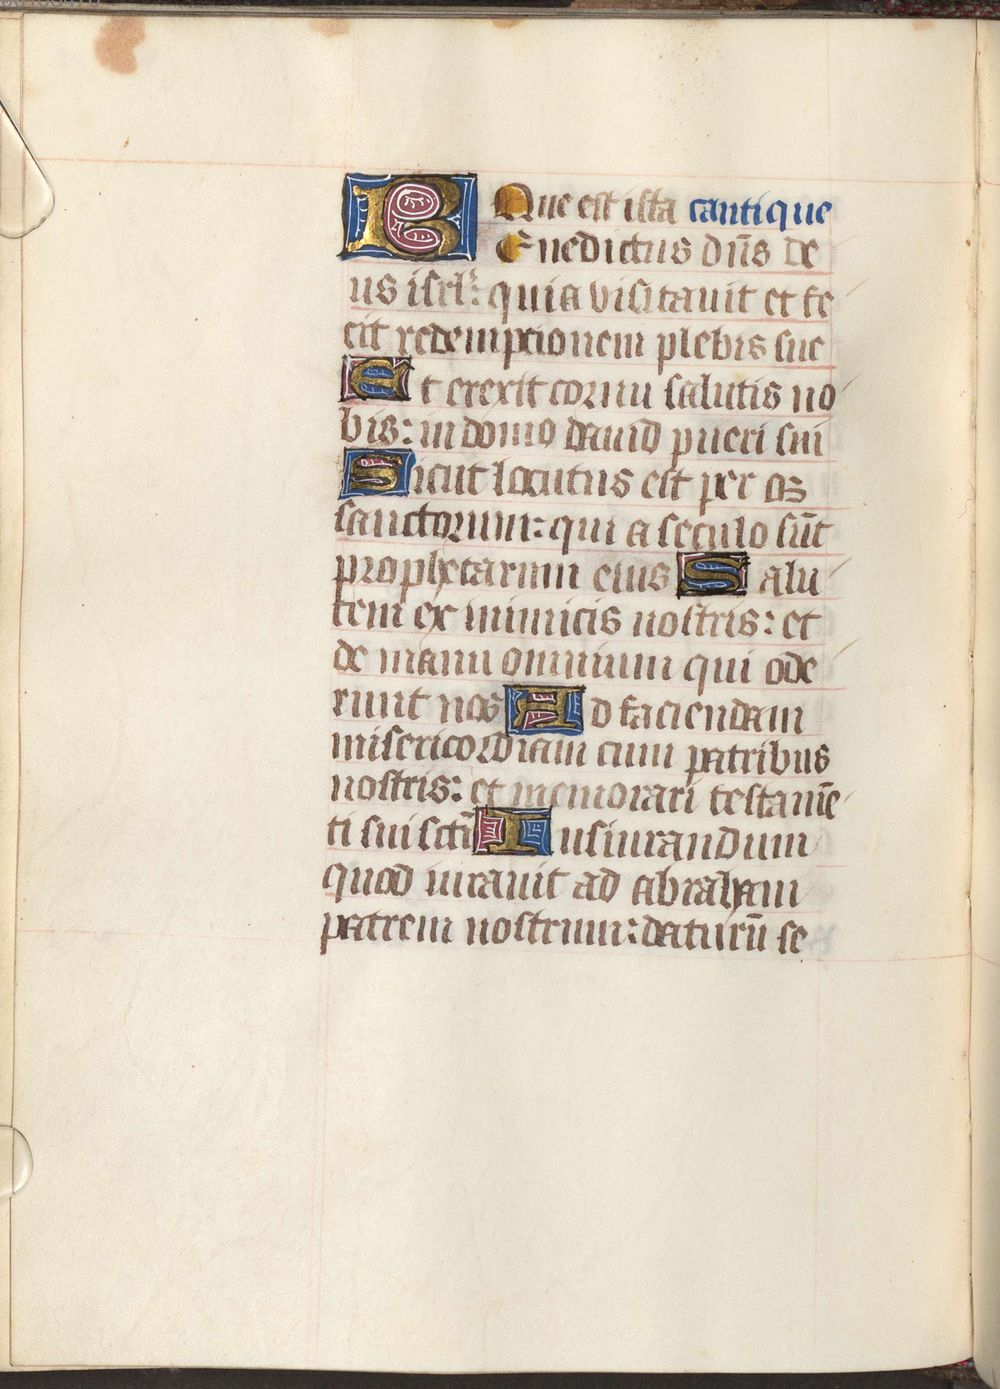 Que est ista cantique
Benedictus dn̄s de
us isrl᷒: quia visitauit et fe
cit redempcionem plebis sue
Et erexit cornu salutis no
bis: in domo dauid pueri sui
Sicut locutus est per os
sanctorum: qui a seculo sūt
prophetarum eius Salu
tem ex inimicis nostris: et
de manu omnium qui ode
runt nos Ad faciendam
misericordiam cum patribus
nostris: et memorari testamē
ti sui scti̅ Iusiurandum
quod iurauit ad abraham
patrem nostrum: daturū se